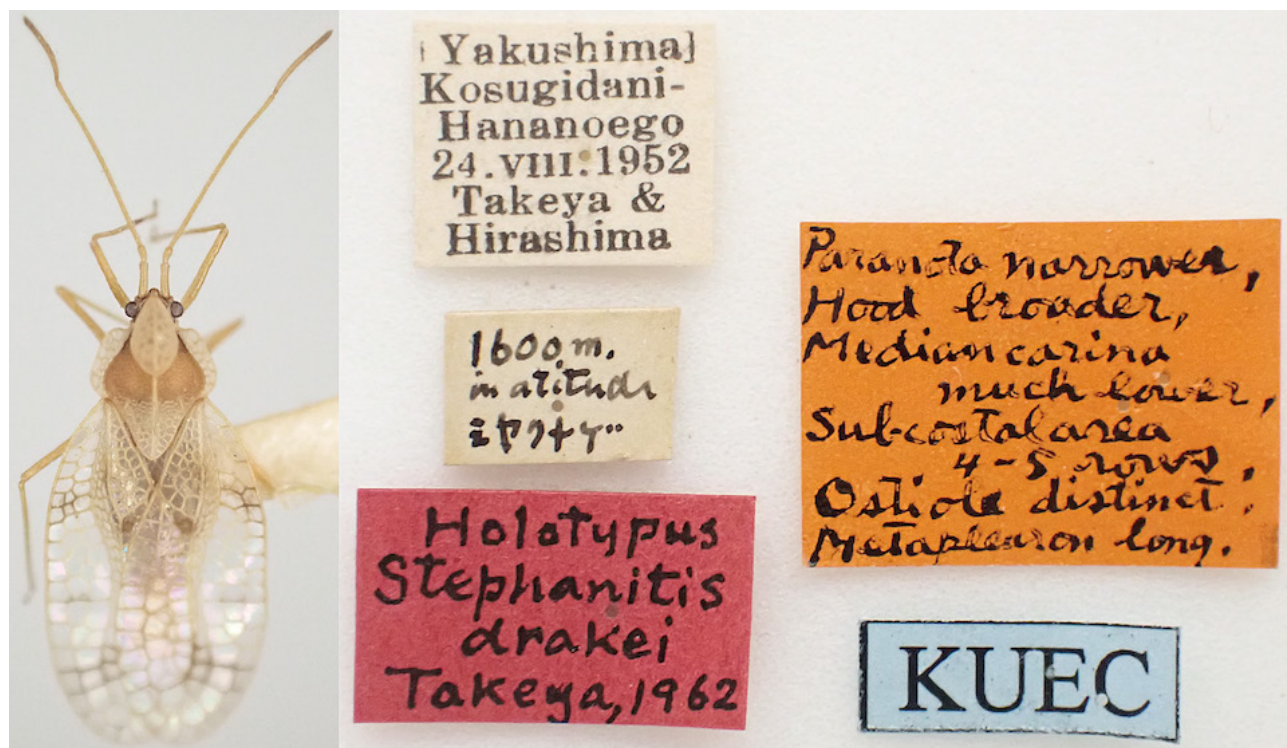 (Yakushima)
Kosugidani-
Hananoego
24.VIII.1952
Takeya &
Hirashima
1600m.
in altitude
ミヤクナゲ
Holotypus
Stephanitis
drakei
Takeya, 1962
Paranota narrower,
Hood broader,
Median carina
much lower,
Subcostal area
4-5 rows,
Ostiole distinct.
Metapleuron long.
KUEC